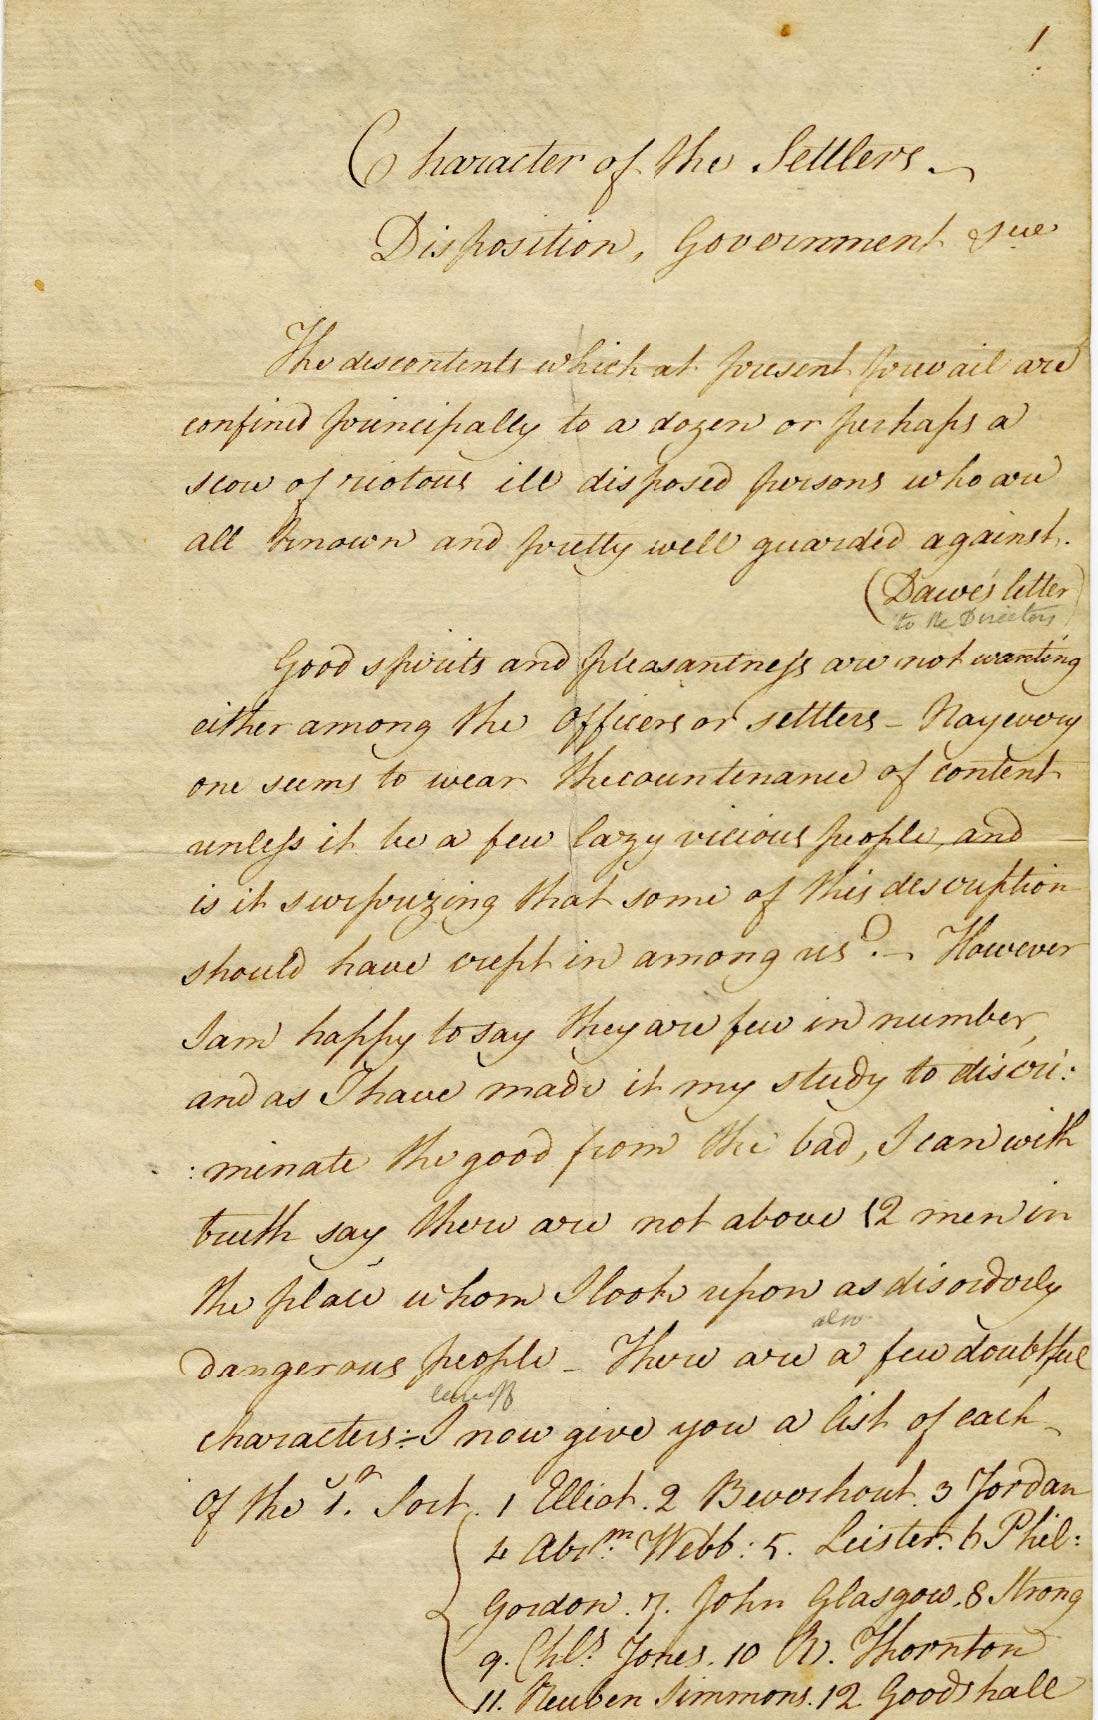 1
Character of the Settlers.
Disposition, Government &
The discontents which at present prevail are
confined principally to a dozen or perhaps a
scou of riotous ill disposed persons who are
all known and pretty well guarded against.
(Dawe's letter
to the Directors)
Good spirits and pleasantness are not wanting
either among the Officers or settlers - Nay every
one seems to wear the countenance of content
unless it be a few lazy vicious people, and
is it surprizing that some of this description
should have crept in among us? - However
I am happy to say they are few in number,
and as I have made it my study to discri:
:minate the good from the bad, I can with
truth say there are not above 12 men in
the place whom I look upon as disorderly
also
dangerous people - There are a few doubtful
characters:- I now give you a list of each
Of the 1st Sort. 1 Elliot. 2 Beverhout. 3 Jordan
4 Abrm. Webb: 5. Leister. 6 Phil:
Gordon. 7. John Glasgow. 8 Strong
9. Chls. Jones. 10 R. Thornton
11. Reuben Simmons. 12 Goodshall